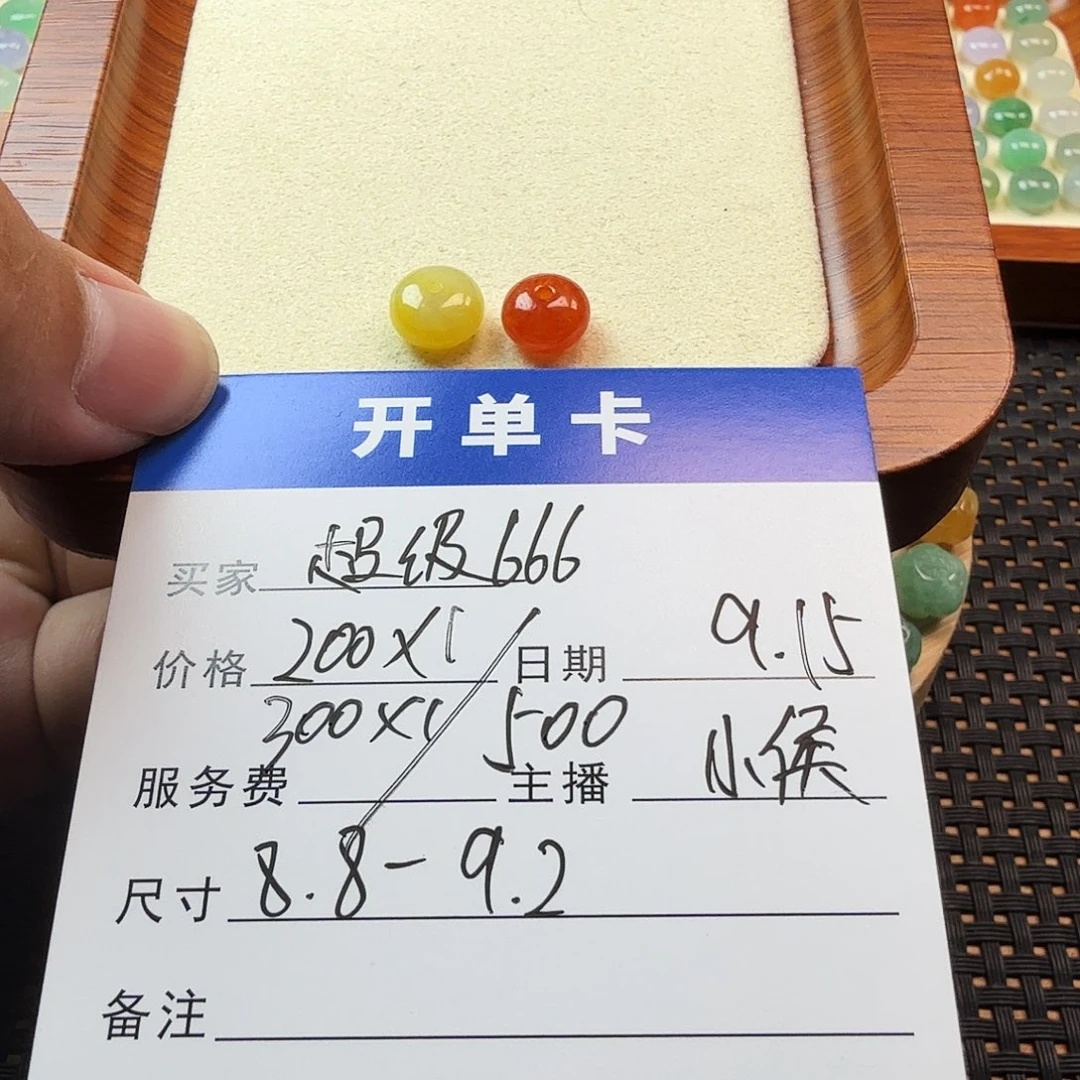 开单卡
买家 超级666
价格 200X1 日期 9.15
300X1 500
服务费 主播 小侯
尺寸 8.8-9.2
备注